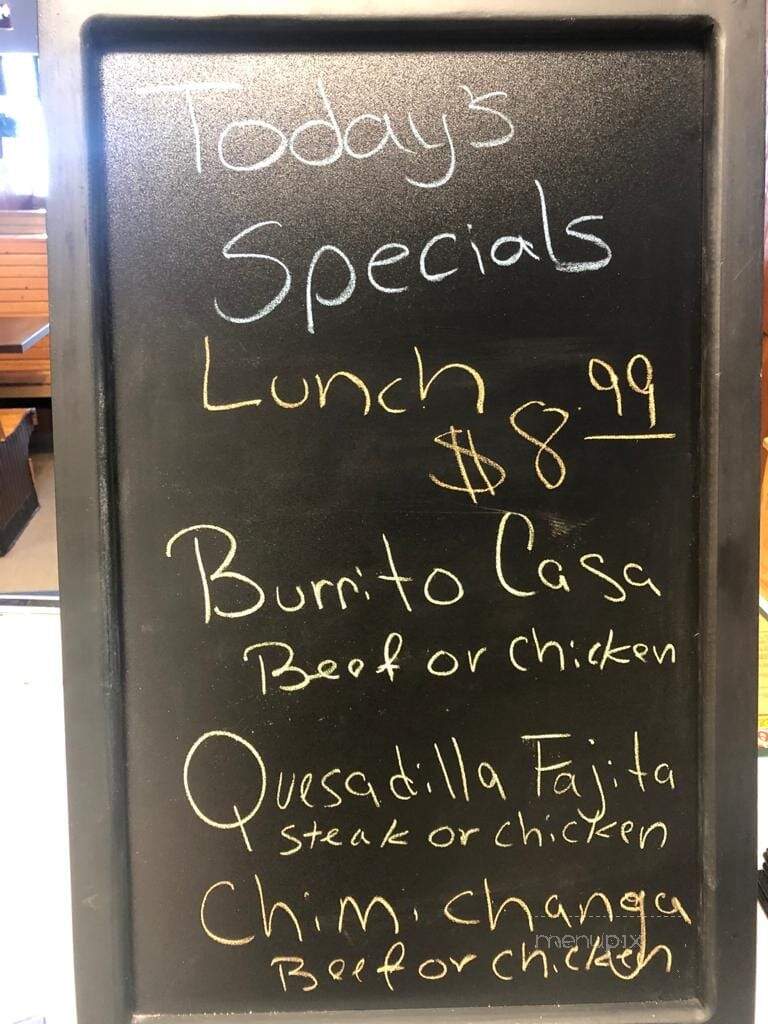 Today's
Specials
Lunch
$8.99
Burrito Casa
Beef or chicken
Quesadilla Fajita
steak or chicken
Chimichanga
menupix
Beef or chicken